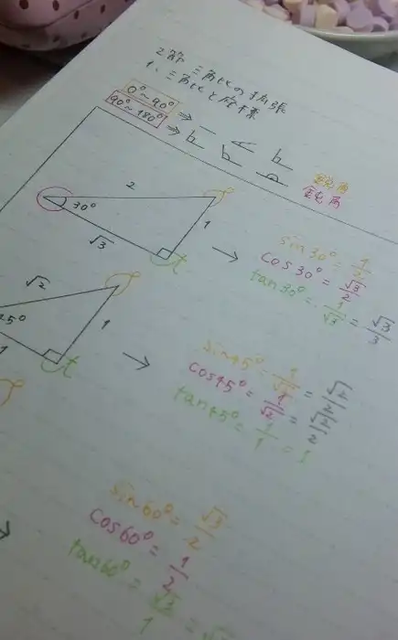 2節 三角比の拡張
1. 三角比と座標
0°~90° ⇒ 鋭角
90°~180° ⇒ 鈍角
2
30°
1
√3
t
→ sin30° = 1/2
cos30° = √3/2
tan30° = 1/√3 = √3/3
√2
45°
1
1
t
→ sin45° = 1/√2 = √2/2
cos45° = 1/√2 = √2/2
tan45° = 1/1 = 1
→ sin60° = √3/2
cos60° = 1/2
tan60° = √3/1 =